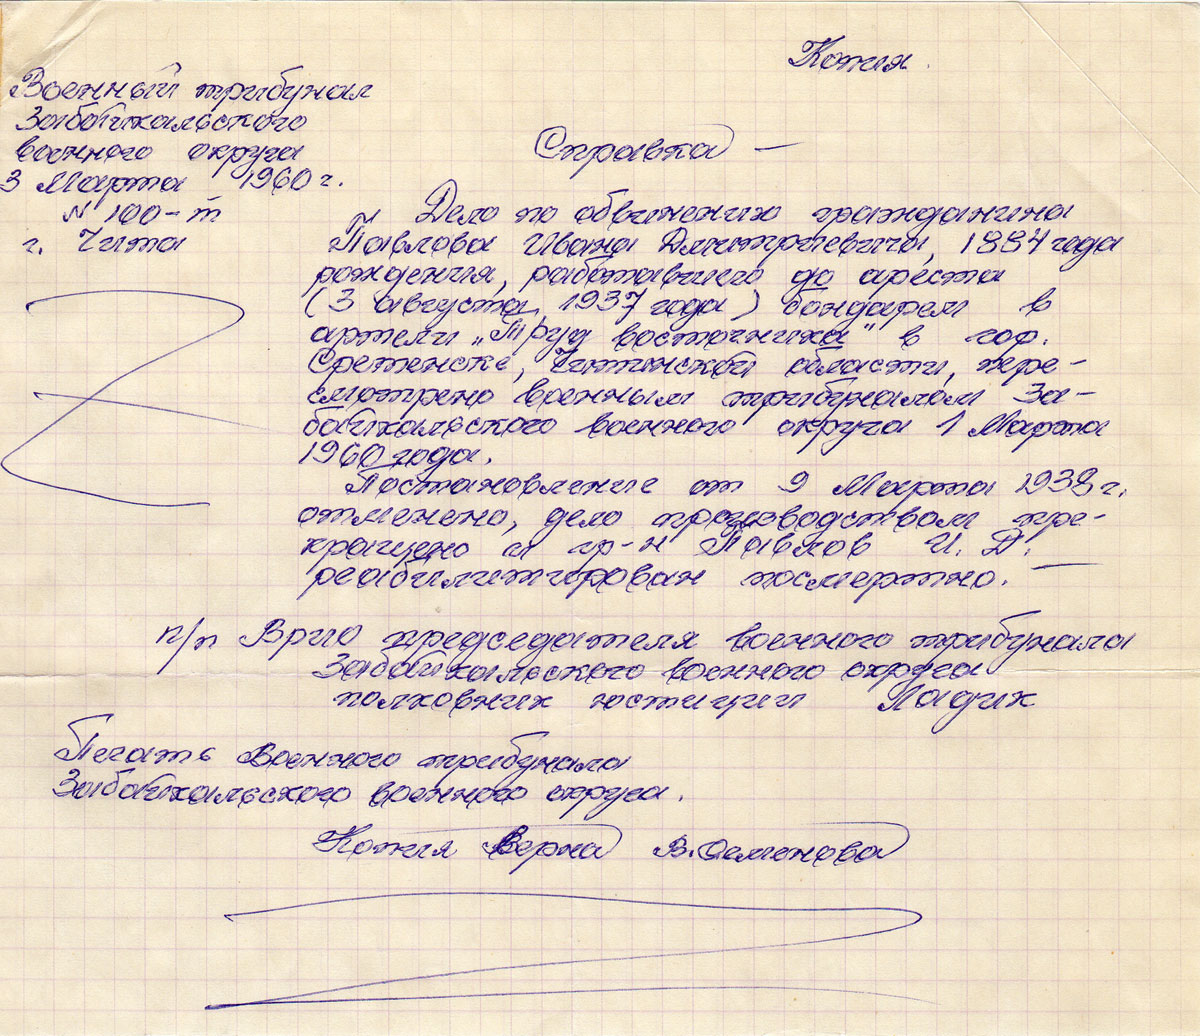 Копия.
Военный трибунал
Забайкальского
военного округа
3 Марта 1960 г.
N 100-т
г. Чита
Справка —
Дело по обвинению гражданина
Павлова Ивана Дмитриевича, 1884 года
рождения, работавшего до ареста
(3 августа 1937 года) бондарем в
артели „Труд восточника" в гор.
Сретенске, Читинской области, пере-
смотрено военным трибуналом За-
байкальского военного округа 1 Марта
1960 года.
Постановление от 9 Марта 1938 г.
отменено, дело производством пре-
кращено и гр-н Павлов И. Д. —
реабилитирован посмертно.
п/п Врио председателя военного трибунала
Забайкальского военного округа
полковник юстиции Ладик
Печать Военного трибунала
Забайкальского военного округа.
Копия верна В. Семенова